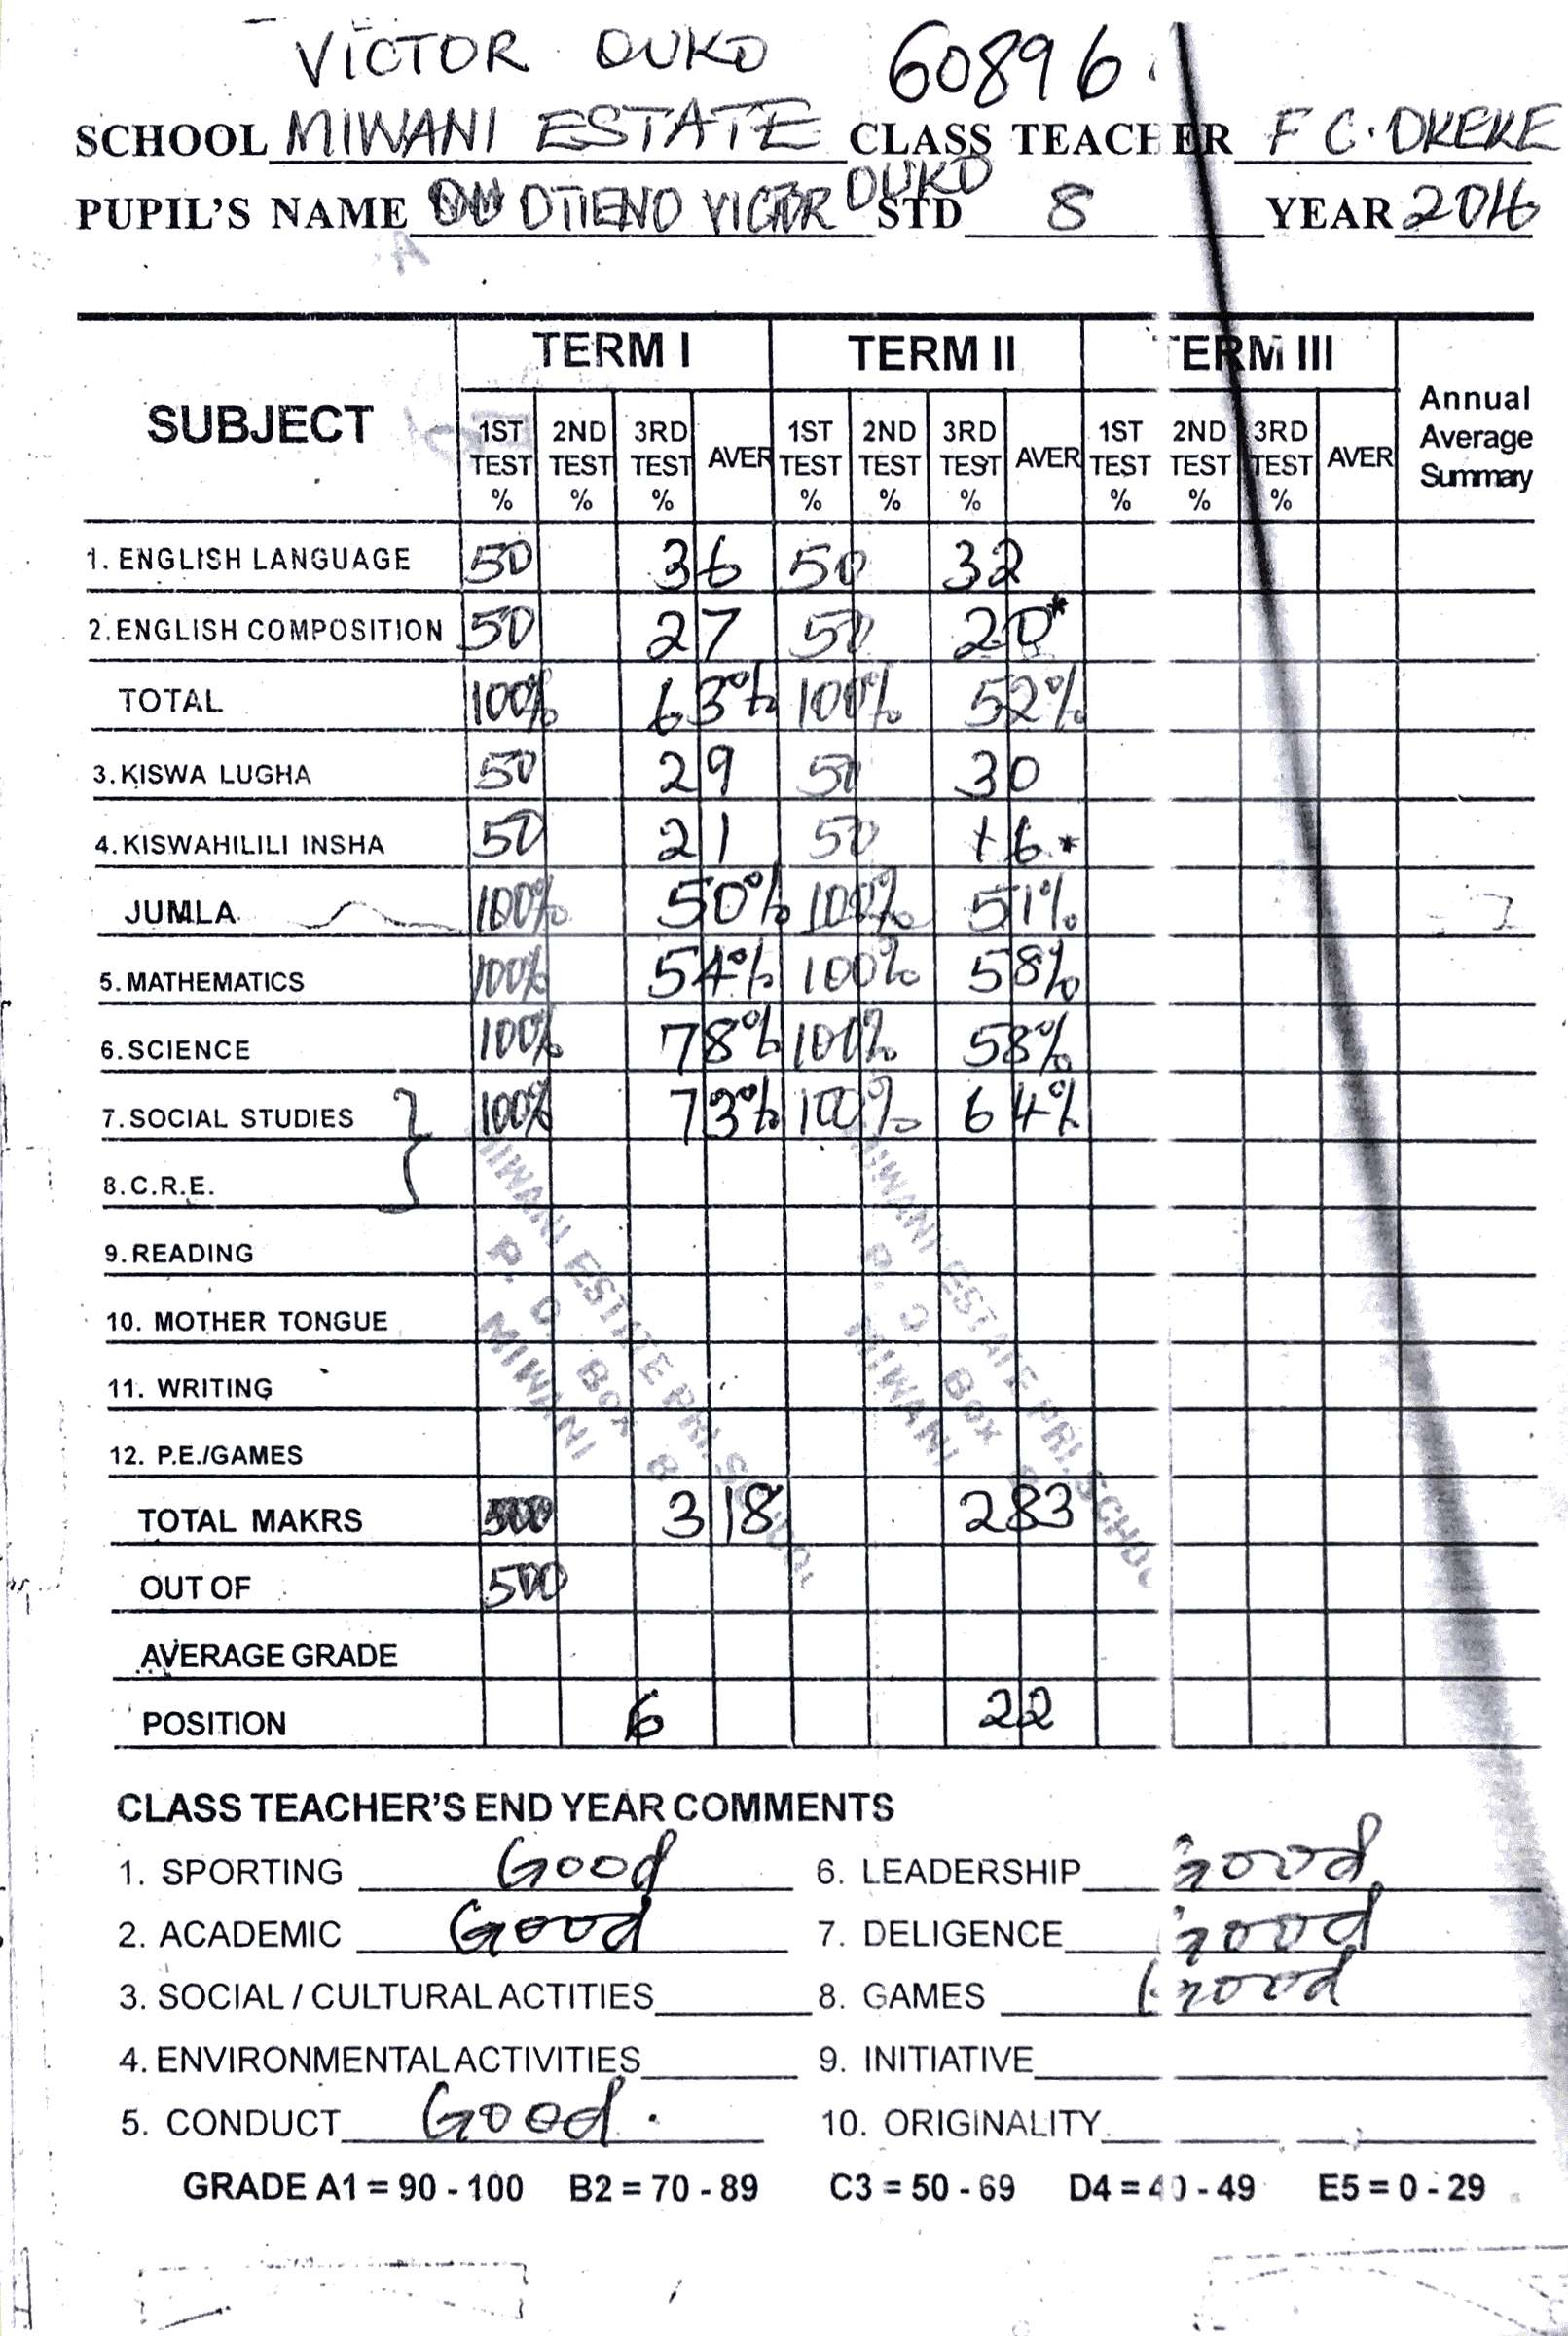 VICTOR OUKO 60896
SCHOOL MIWANI ESTATE CLASS TEACHER F C. OKEKE
PUPIL'S NAME OTIENO VICTOR OUKO STD 8 YEAR 2016
SUBJECT TERM I TERM II TERM III Annual Average Summary
1ST TEST % 2ND TEST % 3RD TEST % AVER 1ST TEST % 2ND TEST % 3RD TEST % AVER 1ST TEST % 2ND TEST % 3RD TEST % AVER
1. ENGLISH LANGUAGE 50 36 50 32
2. ENGLISH COMPOSITION 50 27 50 20*
TOTAL 100% 63% 100% 52%
3. KISWA LUGHA 50 29 50 30
4. KISWAHILILI INSHA 50 21 50 *
JUMLA 100% 50% 100% 51%
5. MATHEMATICS 100% 54% 100% 58%
6. SCIENCE 100% 78% 100% 58%
7. SOCIAL STUDIES 100% 73% 100% 64%
8. C.R.E.
9. READING
10. MOTHER TONGUE
11. WRITING
12. P.E./GAMES
MIWANI ESTATE PRI. SCHOOL
P. O Box
MIWANI
MIWANI ESTATE PRI. SCHOOL
P. O Box
MIWANI
TOTAL MAKRS 500 318 283
OUT OF 500
AVERAGE GRADE
POSITION 6 22
CLASS TEACHER'S END YEAR COMMENTS
1. SPORTING Good 6. LEADERSHIP Good
2. ACADEMIC Good 7. DELIGENCE Good
3. SOCIAL / CULTURAL ACTITIES 8. GAMES Good
4. ENVIRONMENTAL ACTIVITIES 9. INITIATIVE
5. CONDUCT Good. 10. ORIGINALITY
GRADE A1 = 90 - 100 B2 = 70 - 89 C3 = 50 - 69 D4 = 40 - 49 E5 = 0 - 29